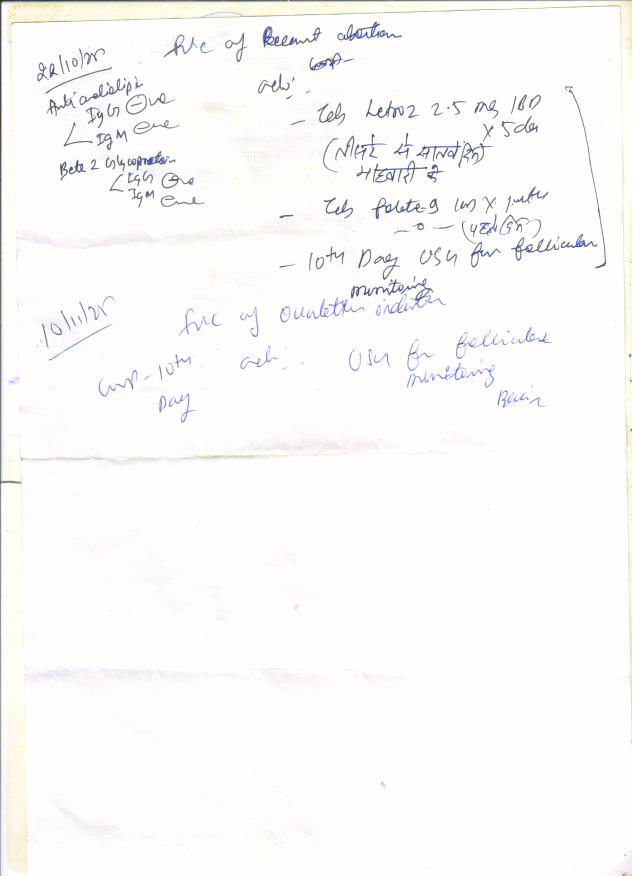 22/10/25
F/U/C of Recurrent abortion
Anti cardiolipin
IgG ⊖ve
IgM ⊖ve
Beta 2 Glycoprotein
IgG ⊖ve
IgM ⊖ve
adv:
- Tab Letroz 2.5 mg 1BD
x 5 days
(तीसरे से सातवें दिन)
माहवारी के
- Tab folate-9 x
- 0 -
- 10th Day USG for follicular
monitoring
10/11/25
F/U/C of Ovulation induction
LMP - 10th
Day
adv:
USG for follicular
monitoring